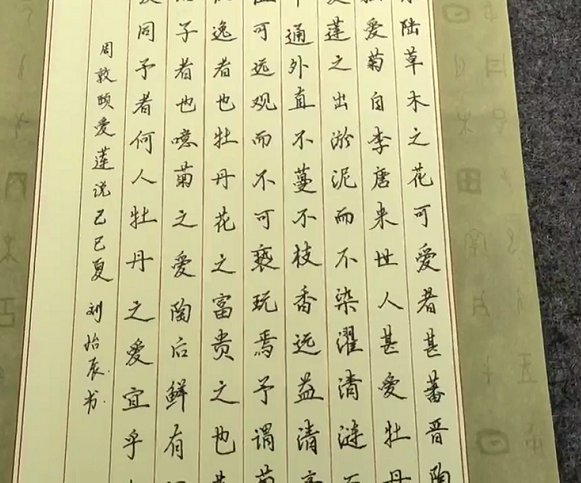 陆草木之花可爱者甚蕃晋陶
爱菊自李唐来世人甚爱牡丹
莲之出淤泥而不染濯清涟而
中通外直不蔓不枝香远益清亭
可远观而不可亵玩焉予谓菊
逸者也牡丹花之富贵之也莲
子者也噫菊之爱陶后鲜有
同予者何人牡丹之爱宜乎
周敦颐爱莲说乙巳夏刘怡辰书